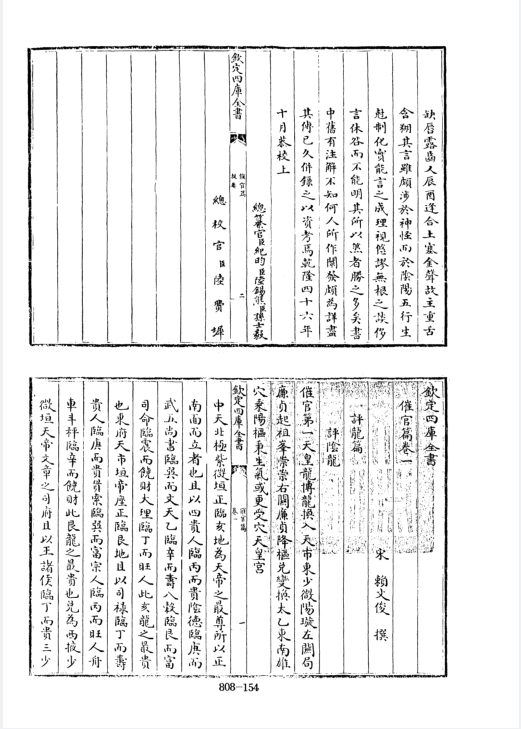 缺唇露齒人辰酉逢合土塞金聲故主重舌
含糊其言雖頗涉於神怪而於陰陽五行生
尅制化實能言之成理視悠謬無根之談侈
言休咎而不能明其所以然者勝之多矣書
中舊有注解不知何人所作闡發頗為詳盡
其傳已久併錄之以資考焉乾隆四十六年
十月恭校上
欽定四庫全書
催官篇
提要
二
總纂官臣紀昀臣陸錫熊臣孫士毅
總校官臣陸費墀
欽定四庫全書
催官篇卷一
宋 賴文俊 撰
評龍篇
評陰龍
催官第一天皇龍博龍換入天市東少微陽璇左闗局
廉貞起祖峯崇崇右闗廉貞降樞兌變換太乙東南雄
穴乘陽樞東生氣或更受穴天皇宫
欽定四庫全書
催官篇
卷一
一
中天北極紫微垣正臨亥地為天帝之最尊所以正
南面而立者也且以四貴人臨丙而貴陰德臨庚而
武五尚書臨巽而文天乙臨辛而壽八穀臨艮而富
司命臨震而饒財大理臨丁而旺人此亥龍之最貴
也東府天市垣帝座正臨艮地且以司祿臨丁而壽
貴人臨庚而貴貫索臨巽而富宗人臨丙而旺人舟
車斗秤臨辛而饒財此艮龍之最貴也兌為西掖少
微垣天帝文章之司府且以王諸侯臨丁而貴三少
808—154